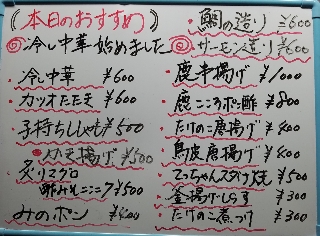 (本日のおすすめ)
冷し中華始めました
冷し中華 ¥600
カツオたたき ¥600
子持ちししゃも ¥500
揚げ ¥500
炙りマグロ
酢みそ ¥500
みのポン ¥400
鯛の造り ¥600
サーモン造り ¥600
鹿串揚げ ¥1000
鹿こころポン酢 ¥800
たけのこ唐揚げ ¥400
鳥皮唐揚げ ¥400
てっちゃん ¥500
釜揚げしらす ¥300
たけのこ煮つけ ¥300